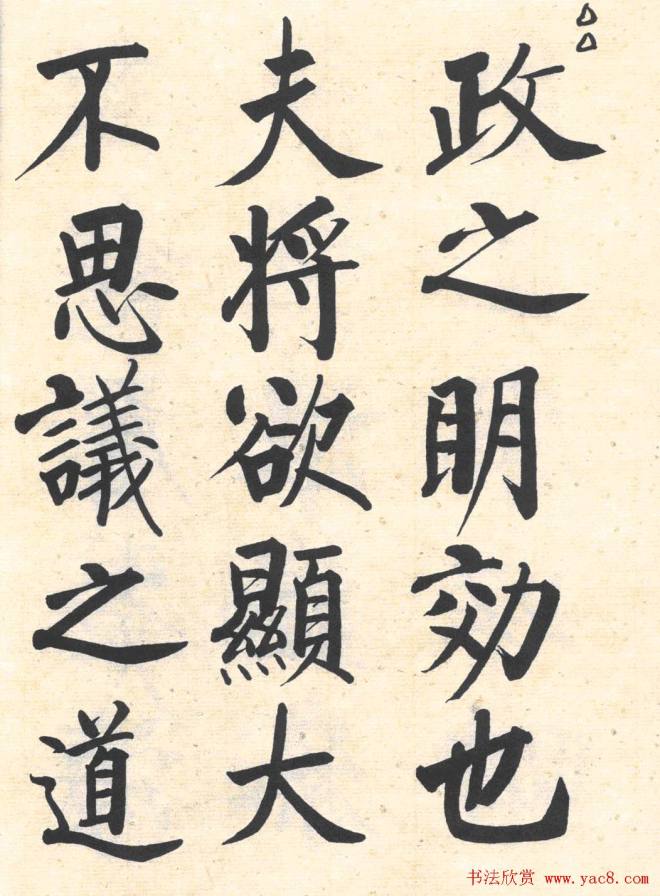 政之明効也
夫将欲顯大
不思議之道
书法欣赏 www.yac8.com